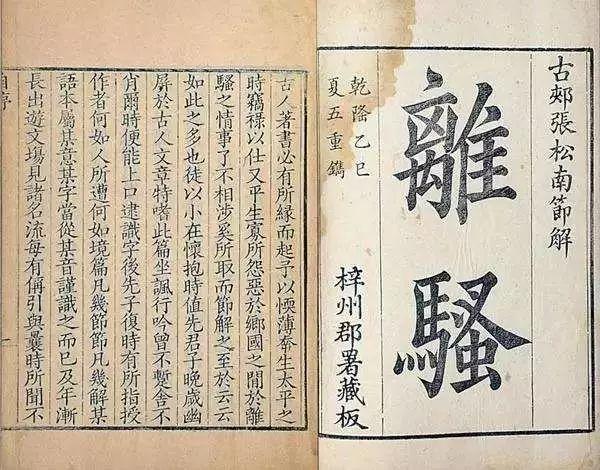 古郟張松南節解
離騷
乾隆乙巳
夏五重鐫
梓州郡署藏板
古人著書必有所緣而起予以愞薄幸生太平之
時竊祿以仕又平生寡所怨惡於鄉國之閒於離
騷之情事了不相涉奚所取而節解之至於云云
如此之多也徒以小在懷抱時值先君子晚歲幽
屏於古人文章特嗜此篇坐諷行吟曾不蹔舍不
肖爾時便能上口逮識字後先子復時有所指授
作者何如人所遭何如境篇凡幾節節凡幾解某
語本屬某意某字當從某音謹識之而已及年漸
長出遊文場見諸名流每有稱引與曩時所聞不